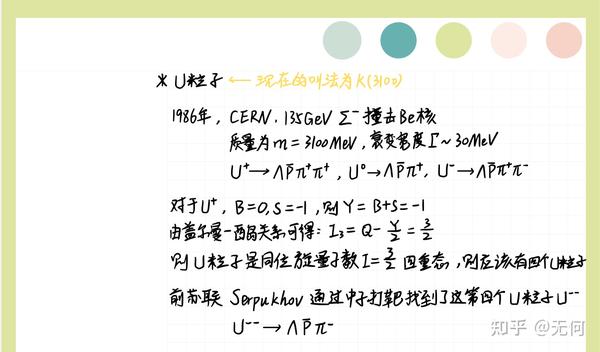 * U粒子 ← 现在的叫法为K(3100)
1986年, CERN. 135GeV Σ⁻ 撞击Be核
质量为m=3100MeV, 衰变宽度Γ~30MeV
U⁺→Λp̄π⁺π⁺, U⁰→Λp̄π⁺, U⁻→Λp̄π⁺π⁻
对于U⁺, B=0,S=-1, 则Y=B+S=-1
由盖尔曼-西岛关系可得: I₃=Q-Y/2=3/2
则U粒子是同位旋量子数I=3/2四重态, 则应该有四个U粒子
前苏联 Serpukhov 通过中子打靶找到了这第四个U粒子U⁻⁻
U⁻⁻→Λp̄π⁻
知乎 @无何